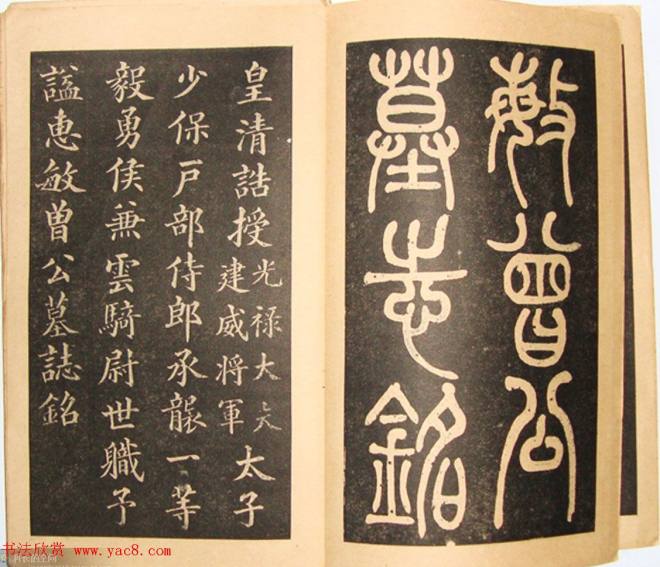 敏曾公
墓志銘
皇清誥授光禄大夫建威將軍太子
少保戶部侍郎承襲一等
毅勇侯兼雲騎尉世職予
謚惠敏曾公墓誌銘
书法欣赏 www.yac8.com